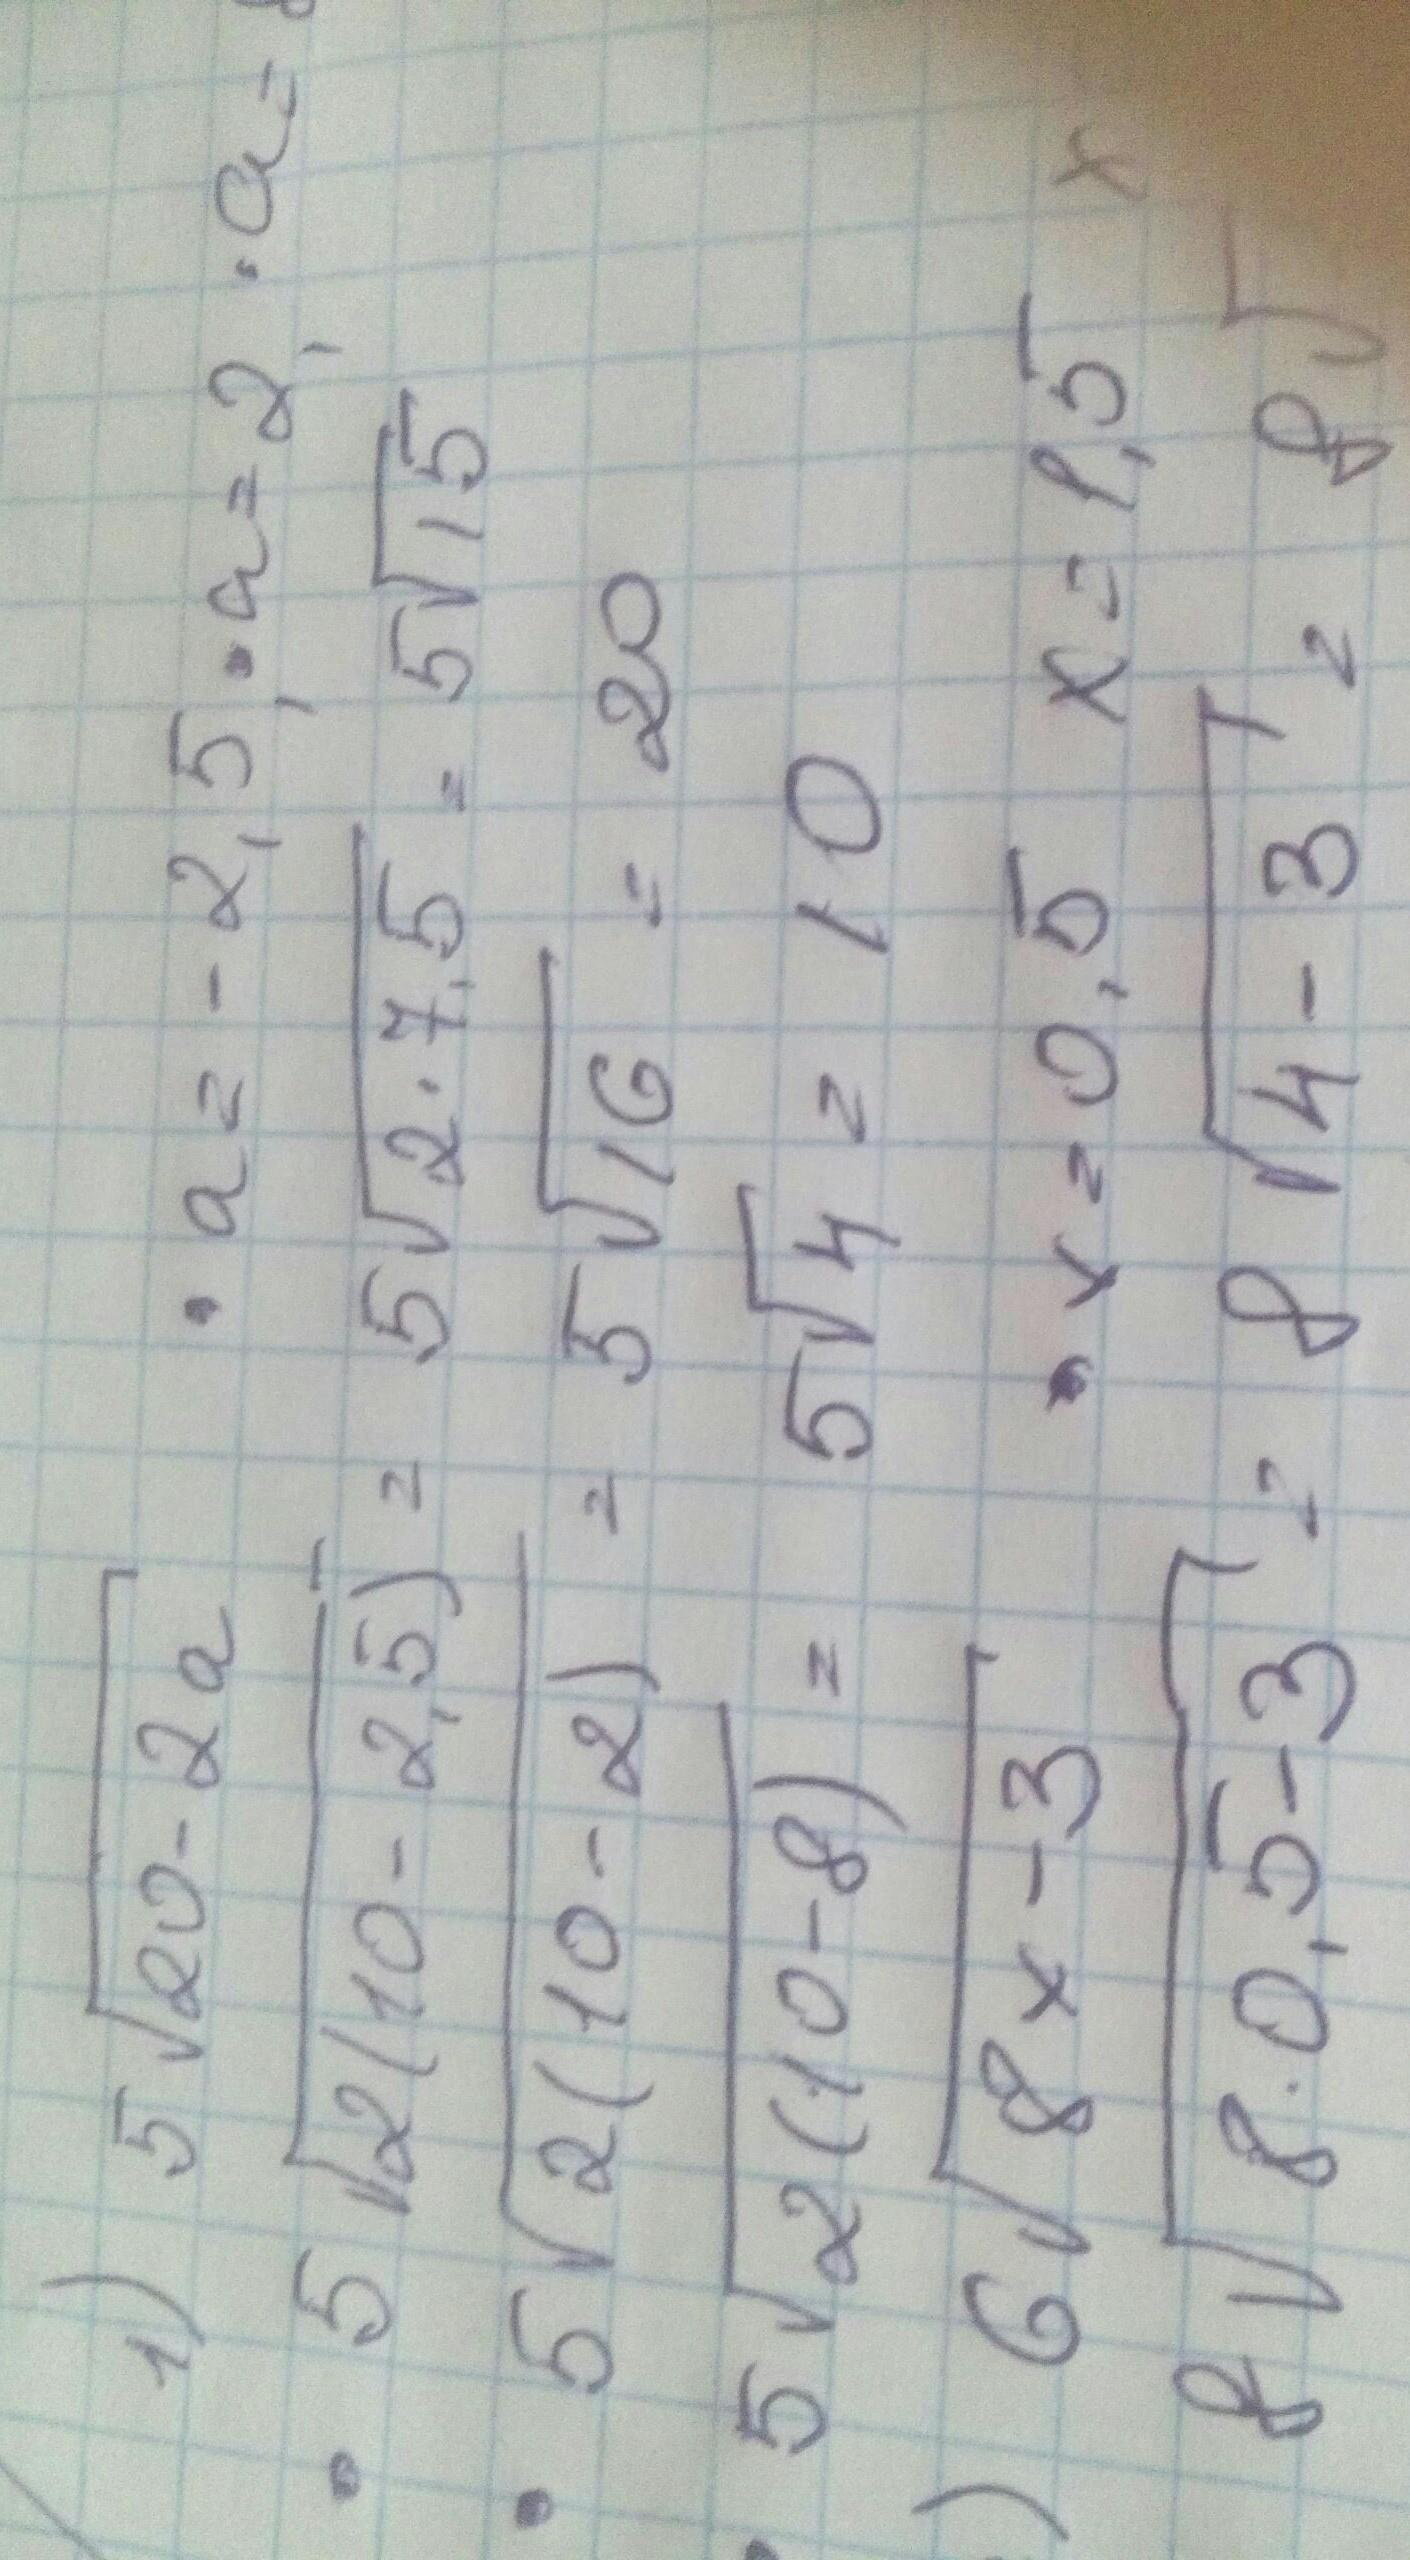 1) 5√20-2a • a = -2,5, • a = 2, • a =
• 5√2(10-2,5) = 5√2·7,5 = 5√15
• 5√2(10-2) = 5√16 = 20
• 5√2(10-8) = 5√4 = 10
) 6√8x-3 • x=0,5 x=1,5 x
8√8·0,5-3 = 8√4-3 = 8√